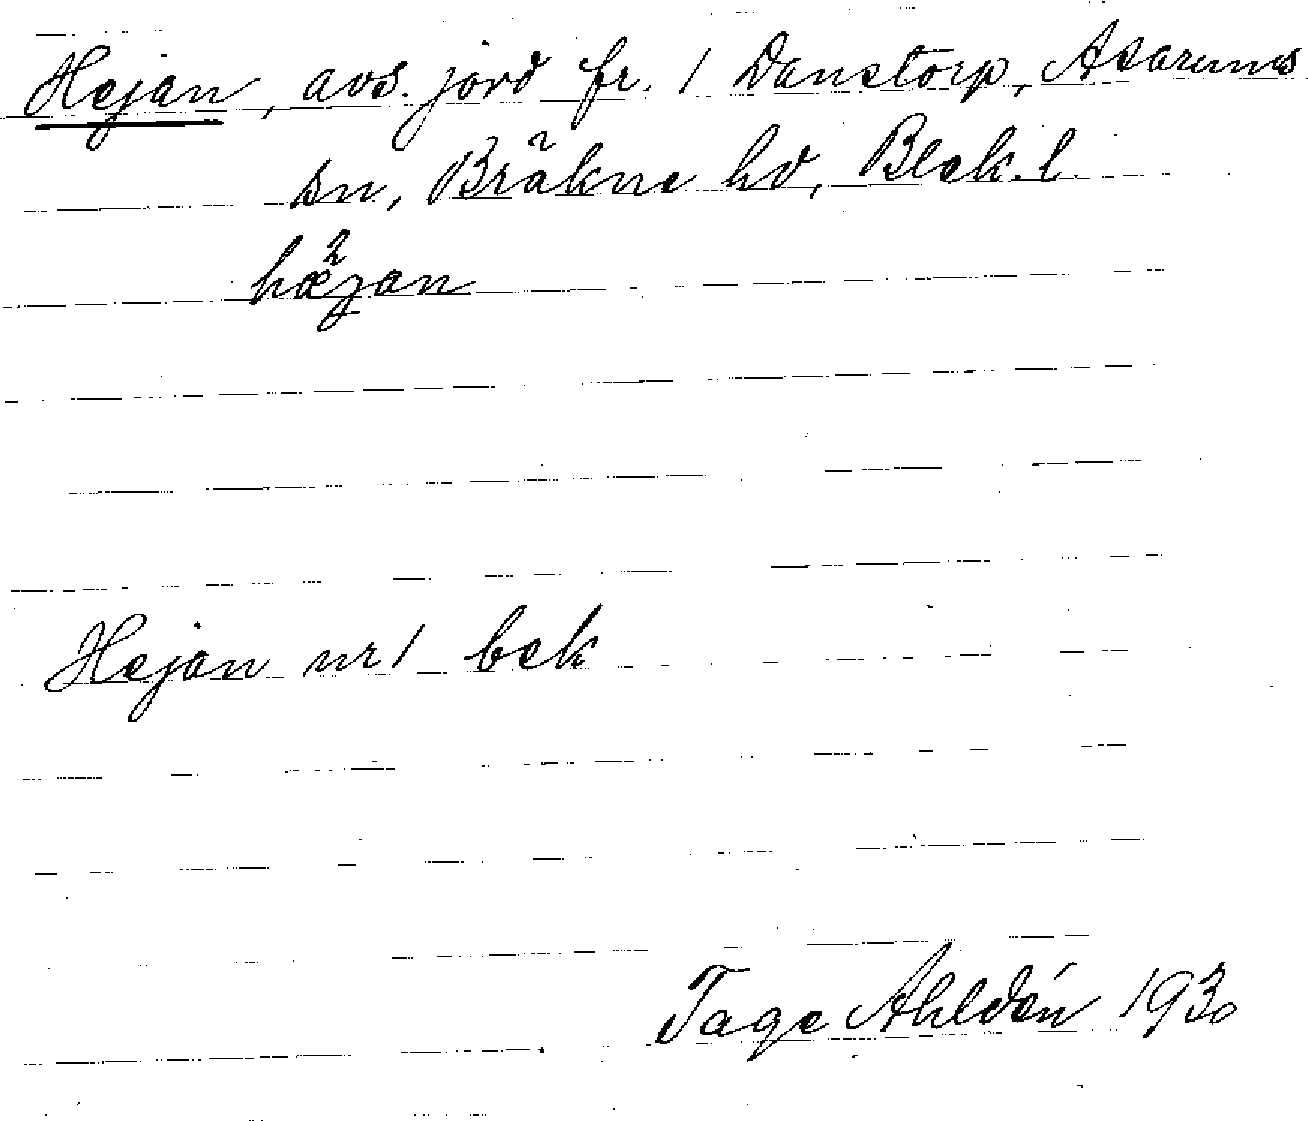 Hejan, avs. jord fr. 1 Danstorp, Asarums
sn, Bräkne hd, Blek. l.
hæ²jan
Hejan nr 1 bek
Tage Ahldén 1930